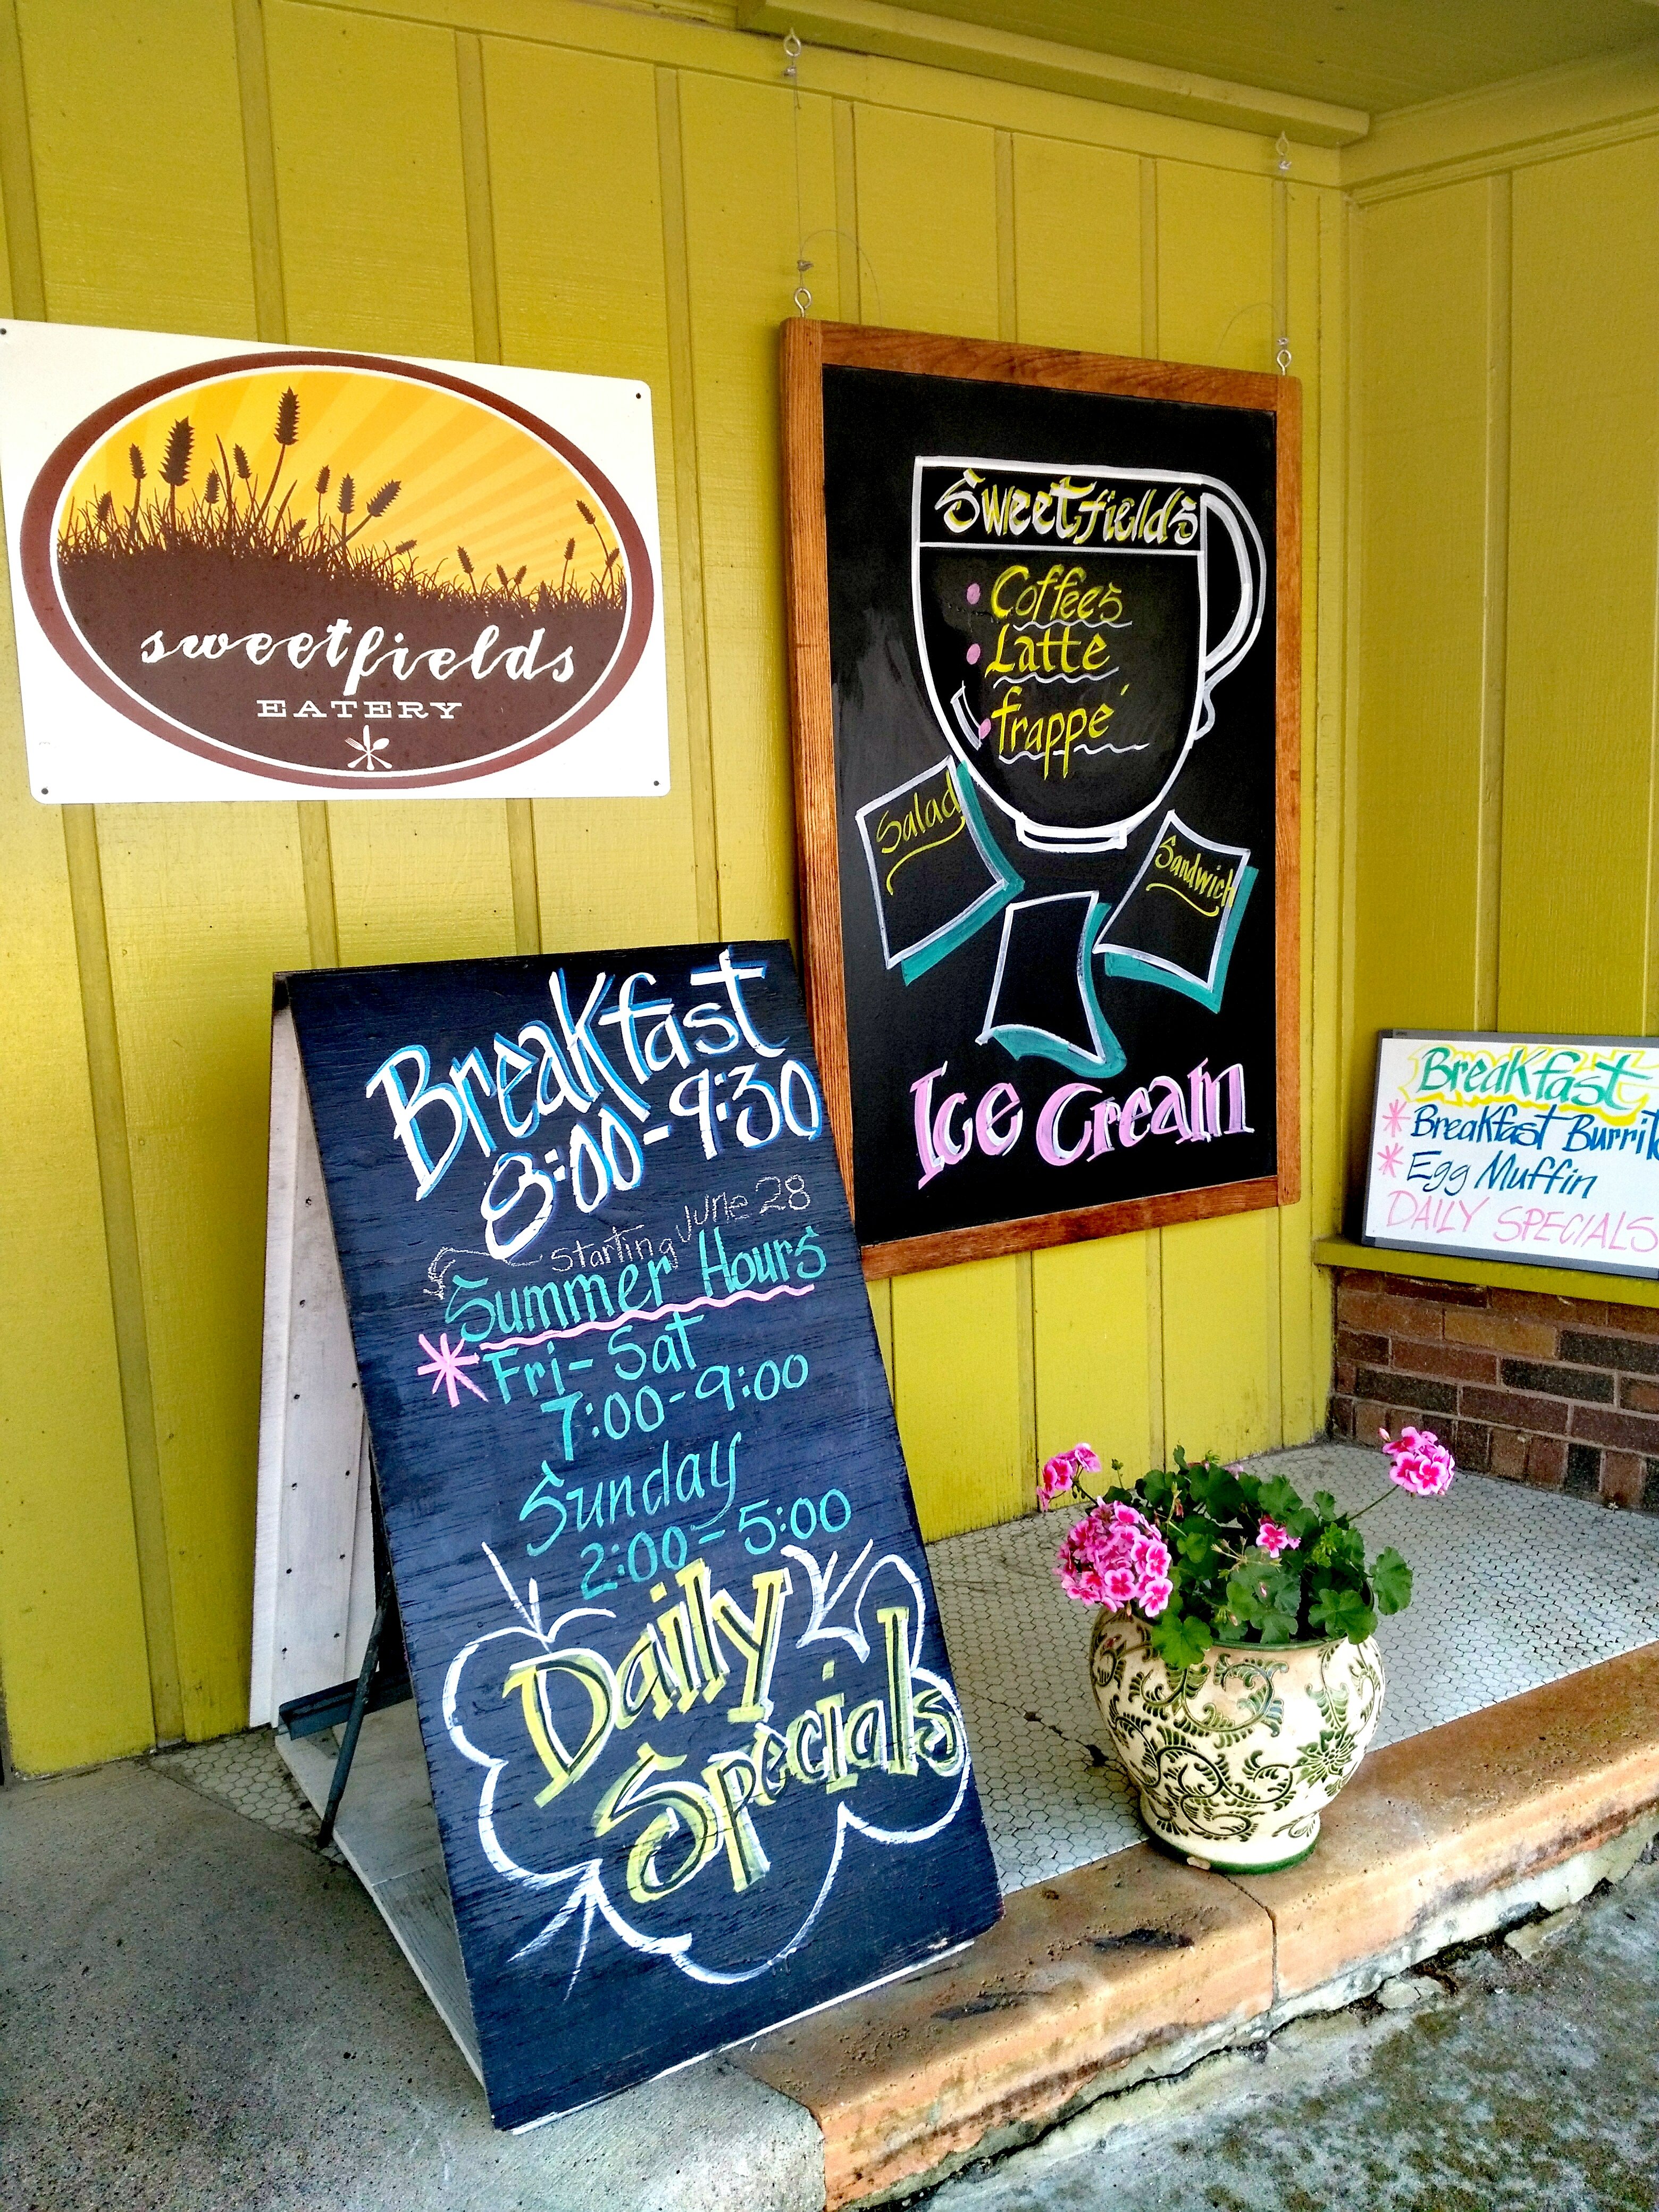 sweetfields
EATERY
Sweetfields
Coffees
Latte
frappé
Salad
Sandwich
Ice Cream
Breakfast
8:00-9:30
Starting June 28
Summer Hours
Fri-Sat
7:00-9:00
Sunday
2:00-5:00
Daily
Specials
Breakfast
Breakfast
Egg Muffin
DAILY SPECIALS